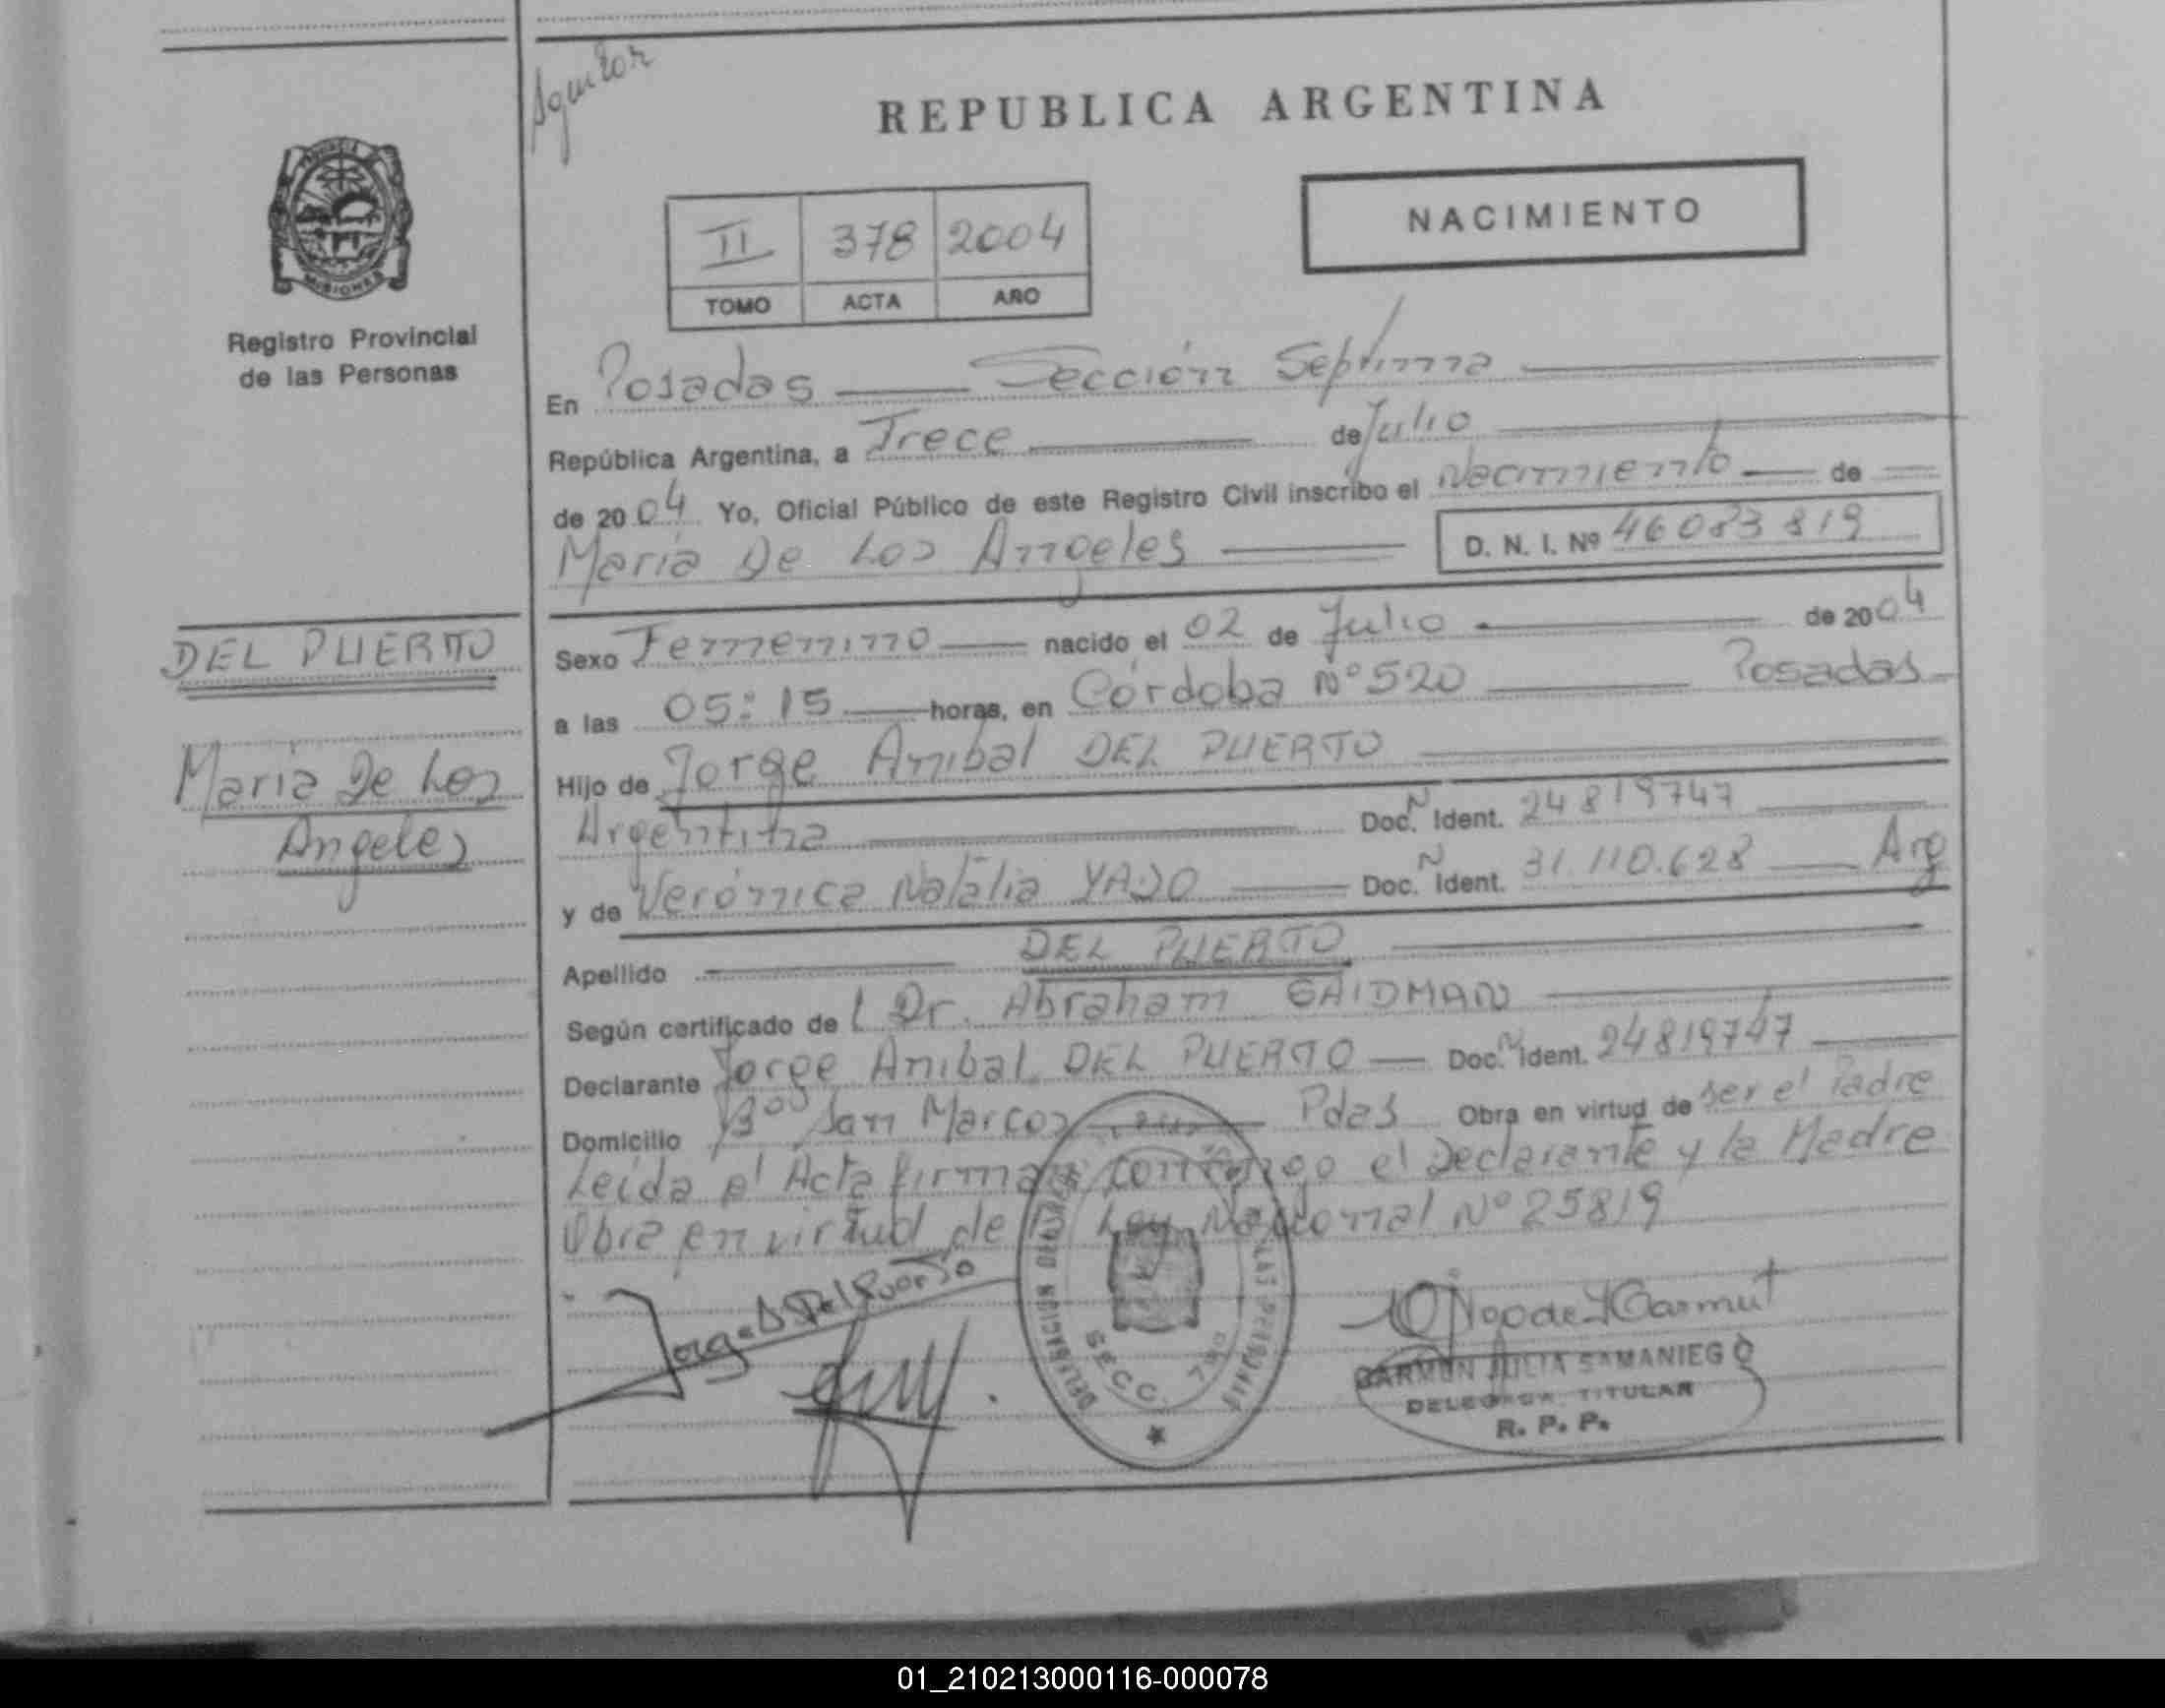 Aguilar
REPUBLICA ARGENTINA
NACIMIENTO
II 378 2004
TOMO ACTA AÑO
Registro Provincial
de las Personas
En Posadas Sección Septima
República Argentina, a Trece de Julio
de 2004 Yo, Oficial Público de este Registro Civil inscribo el Nacimiento de
María De Los Angeles D. N. I. Nº 46083819
DEL PUERTO
María De Los
Angeles
Sexo Femenino nacido el 02 de Julio de 2004
a las 05:15 horas, en Córdoba Nº 520 Posadas
Hijo de Jorge Anibal DEL PUERTO
Argentina Doc. N Ident. 24819747
y de Verónica Natalia Doc. N Ident. 31.110.628 Arg
Apellido DEL PUERTO
Según certificado de l Dr. Abraham GAIDMAN
Declarante Jorge Anibal DEL PUERTO Doc. N Ident. 24819747
Domicilio Bº San Marcos Pdas Obra en virtud de ser el Padre
Leída el Acta firman conmigo el Declarante y la Madre
Obra en virtud de la Ley Nacional Nº 25819
SECC. 7ma
CARMEN JULIA SAMANIEGO
DELEGADA TITULAR
R. P. P.
01_210213000116-000078